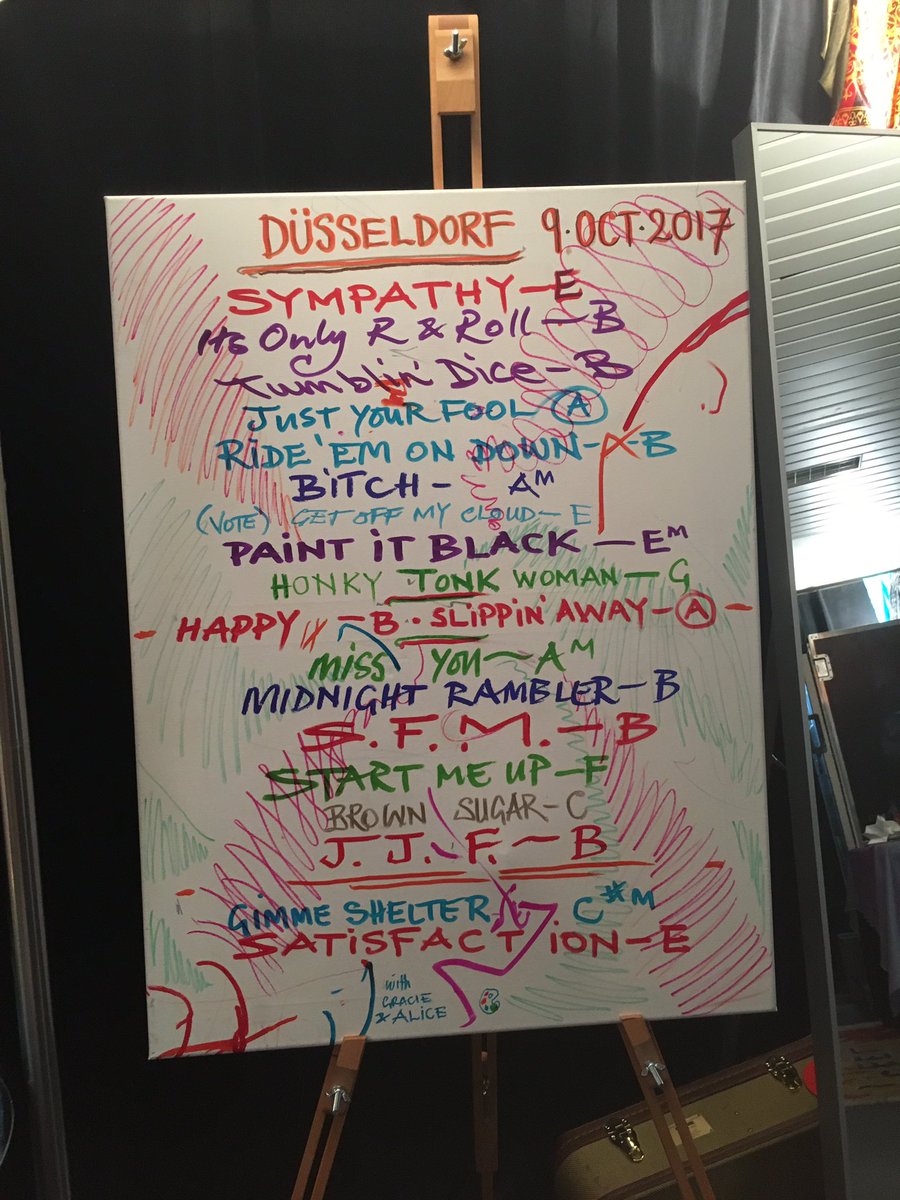 DÜSSELDORF 9.OCT.2017
SYMPATHY-E
Its Only R & Roll - B
Tumblin' Dice - B
JUST YOUR FOOL A
RIDE 'EM ON DOWN-A-B
BITCH - Am
(VOTE) GET OFF MY CLOUD- E
PAINT IT BLACK - Em
HONKY TONK WOMAN - G
HAPPY IX - B.. SLIPPIN' AWAY - A
MISS YOU - Am
MIDNIGHT RAMBLER - B
S.F.M. - B
START ME UP - F
BROWN SUGAR - C
J. J. F. - B
GIMME SHELTER C#M
SATISFACTION - E
with
GRACIE
& ALICE